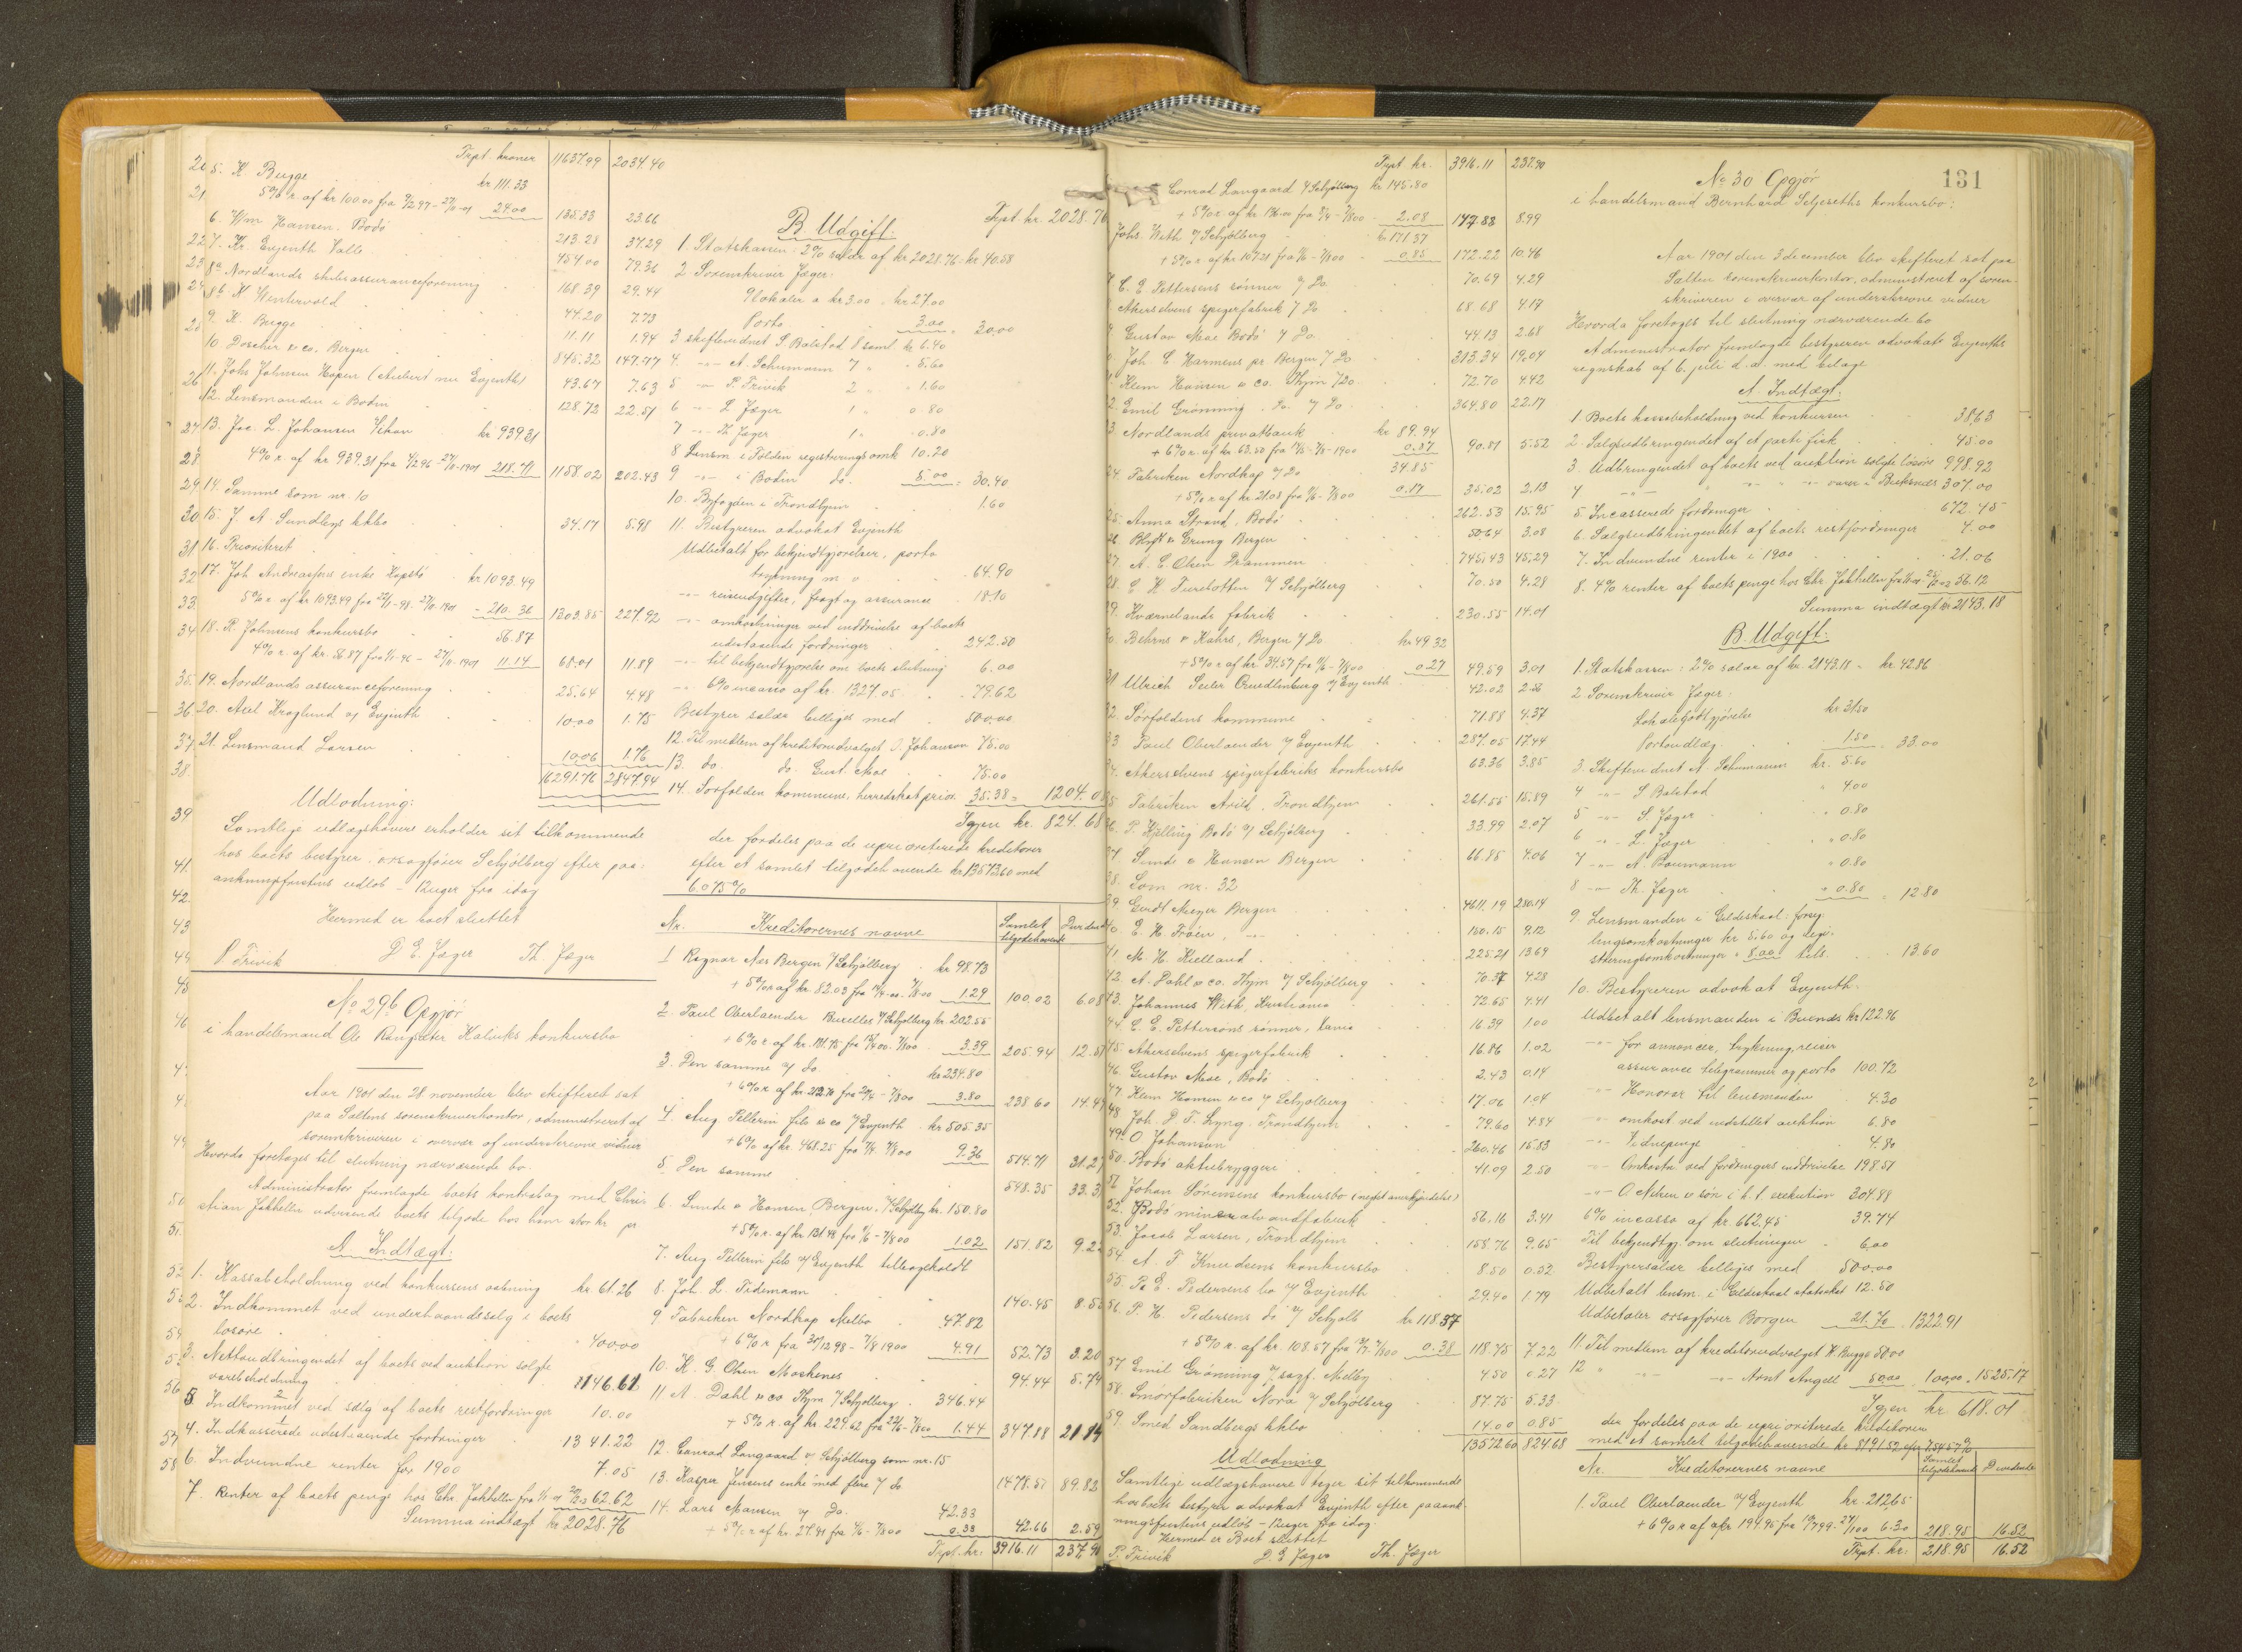 Trpt. kroner 11637.99 2034.40
5. K Bugge kr 111.33
5% r. af kr 100.00 fra 9/2 97 - 27/11-01 24.00 135.33 23.66
6. W/m Hansen. Bodö 213.28 37.29
7. Kr. Evjenth Valle 454.00 79.36
8a Nordlands skibsassuranceforening 168.39 29.44
8b K Wintervold 44.20 7.73
9. K. Bugge 11.11 1.94
10 Doscher & co. Bergen 845.32 147.77
11. Johs Johnsen Hopen (Aubert nu Evjenth) 43.67 7.63
12. Lensmanden i Bodin 128.72 22.51
13. Joe. L. Johansen Vikan kr 939.31
4% r. af kr 939.31 fra 4/2 96 - 27/11-1901 218.71 1158.02 202.43
14. Samme som nr 10
15. J. A Sundleys kkbo 34.17 5.98
16. Prioriteret
17. Joh Andreassens enke Kopstö kr 1093.49
5% r. af kr 1093.49 fra 22/1-98 - 27/11-1901 210.36 1303.85 227.92
18. R. Johnsens konkursbo 56.87
4% r. af kr. 56.87 fra 1/1-96 - 27/11-1901 11.14 68.01 11.89
19. Nordlands assuranceforening 25.64 4.48
20. Axel Kroglund v/ Evjenth 10.00 1.75
21. Lensmand Larsen 10.06 1.76
16291.76 2847.94
Udlodning:
Samtlige udlægshavere erholder sit tilkommende
hos boets bestyrer. orsagfører Schjölberg efter paa-
ankningsfristens udlöb - 12 uger fra idag
Hermed er boet sluttet
P Trivik D E. Jæger Th Jæger
No 296 Opgjör
i handelsmand Ole Rangsæter Kalviks konkursbo
Aar 1901 den 28 november blev skifteret sat
paa Saltens sorenskriverkontor, administreret af
sorenskriveren i overvær af underskrevne vidner
Hvorda foretoges til slutning nærværende bo.
Administrator fremlagde boets kontrabog med Chris-
tian Jakhelln udvisende boets tilgode hos ham stor kr pr
A. Indtægt:
1. Kassabeholdning ved konkursens aabning kr 61.26
2. Indkommet ved underhaandssalg i boets
lösöre 400.00
3. Nettoudbringendet af boets ved auktion solgte
varebeholdning 146.61
5 Indkommet ved salg af boets restfordringer 10.00
4. Indkasserede udestaaende fordringer 1341.22
6. Indvundne renter for 1900 7.05
7. Renter af boets penge hos Chr. Jakhelln 62.62
Summa indtægt kr 2028.76
Trpt. kr. 2028.76
B. Udgift.
1. Statskassen: 2% salær af kr 2028.76 = kr 40.58
2 Sorenskriver Jæger:
9 lokaler a kr 3.00 kr 27.00
Porto 3.00 = 30.00
3 skiftevidnet S Balstad 8 saml kr 6.40
4. -"- A. Schumann 7 " 5.60
5 -"- P. Trivik 2 " 1.60
6 -"- L Jæger 1 " 0.80
7 -"- Th Jæger 1 " 0.80
8 Lensm i Folden registrerings omk 10.20
9 -"- i Bodin do. 5.00 = 30.40
10. Byfogden i Trondhjem 1.60
11. Bestyreren advokat Evjenth
Udbetalt for bekjendtgjørelser, porto
trykning m v 64.90
-"- reiseudgifter, fragt og assurance 18.10
-"- omkostninger ved inddrivelse af boets
udestaaende fordringer 242.50
-"- til bekjendtgjörelse om boets slutning 6.00
-"- 6% incasso af kr. 1327.05 79.62
Bestyrer salær billiges med 500.00
12. Til medlem af kreditorudvalget O. Johansen 75.00
13. do. do. Gust. Moe 75.00
14. Sørfolden kommune, herredskat prior. 35.38 = 1204.08
Igjen kr. 824.68
der fordeles paa de uprioriterede kreditorer
efter et samlet tilgodehavende kr 13572.60 med
6.075%
Nr. Kreditorernes navne Samlet tilgodehavende Dividende
1 Ragnar Aas Bergen v/ Schjölberg kr 98.73
+ 5% r af kr. 82.03 1.29 100.02 6.08
2. Paul Oberlaender Buxelles v/ Schjölberg kr. 202.55
3.39 205.94 12.51
3. Den samme v/ do. kr 234.80
3.80 238.60 14.49
4. Aug Pellerin fils & co v/ Evjenth kr 505.35
+ 6% af kr. 468.25 9.36 514.71 31.27
5. Den samme 548.35 33.31
6. Sunde & Hansen, Bergen. v/ Schjölbg kr. 150.80
1.02 151.82 9.22
7. Aug Pellerin fils v/ Evjenth tilbageholdt
8. Joh. L. Tidemann 140.45 8.53
9 Fabriken Nordkap Melbo 47.82
+ 6% r fra 30/12 98 - 7/8 1900 4.91 52.73 3.20
10. K. G. Olsen Moskenes 94.44 5.74
11 A. Dahl & co Thjm v/ Schjölberg. 346.44
+ 5% r. af kr. 229.62 1.44 347.88 21.14
12. Conrad Langaard v. Schjölberg som nr. 15
13. Kasper Jensens enke med flere v/ do 1478.51 89.82
14. Lars Mausen v/ Do. 42.33
0.33 42.66 2.59
Trpt. kr: 3916.11 237.90
131
Trpt kr. 3916.11 237.90
Conrad Langaard v/ Schjölberg kr 145.80
2.08 147.88 8.99
Johs. With v/ Schjölberg kr 171.37
0.85 172.22 10.46
C. E Pettersens sönner v/ Do. 70.69 4.29
Akerselvens spigerfabrik v/ Do 68.68 4.17
Gustav Moe Bodö v/ Do. 44.13 2.68
Joh. C Harmens pr Bergen v/ Do 313.34 19.04
Klem Hansen & co. Thjm v/ Do. 72.70 4.42
Emil Grönning . Do. v/ Do. 364.80 22.17
Nordlands privatbank kr 89.94
0.87 90.81 5.52
24. Fabriken Nordkap v/ Do 34.85
0.17 35.02 2.13
25. Anna Strand, Bodö 262.53 15.95
26 Blydt & Grung Bergen 50.64 3.08
27. A. C Olsen Drammen 745.43 45.29
28. C. H Turebotten v/ Schjölberg 70.50 4.28
29. Kværnelands fabrik 230.55 14.01
30. Behrns & Kahrs, Bergen v/ Do. kr 49.32
0.27 49.59 3.01
31 Ulrich Seiler Quedlinburg v/ Evjenth 42.02 2.56
32. Sörfoldens kommune 71.88 4.37
33 Paul Oberlaender v/ Evjenth 287.05 17.44
34. Akerselvens spigerfabriks konkursbo 63.36 3.85
35 Fabriken Arild. Trondhjem 261.55 15.89
36. P. Kjelling Bodö v/ Schjölberg 33.99 2.07
37. Sunde & Hansen Bergen 66.85 4.06
38. Som nr. 32
39. Gerdt Meyer Bergen 4611.19 280.14
40. E. H. Troen, -"- 150.15 9.12
41 M. H. Kielland 225.21 13.69
42. A. Dahl & co. Thjm v/ Schjölberg 70.37 4.28
43. Johannes With, Kristiania 72.65 4.41
44. C. E. Pettersons sönner, Xania 16.39 1.00
45 Akerselvens spigerfabrik 16.86 1.02
46. Gustav Moe, Bodö 2.43 0.14
47 Klem Hansen & co v/ Schjölberg 17.06 1.04
48 Joh. P T. Lyng, Trondhjem 79.60 4.84
49 O Johansen 260.46 15.83
50. Bodö aktiebryggeri 41.09 2.50
51 Johan Sörensens konkursbo (meget anerkjendelse)
52. Bodö mineralvandfabrik 56.16 3.41
53. Jacob Larsen, Trondhjem 158.76 9.65
54. A. F Knudsens konkursbo 8.50 0.52
55. P. E. Pedersens bo v/ Evjenth 29.40 1.79
56. P. H. Pedersens do v/ Schjølb kr 118.37
+ 5% r. af kr. 108.57 0.38 118.75 7.22
57 Emil Grönning v/ sagf. Melby 4.50 0.27
58. Smörfabriken Nora v/ Schjölberg 87.75 5.33
59. Smed Sandbergs kkbo 14.00 0.85
13572.60 824.68
Udlodning
Samtlige udlægshavere tager sit tilkommende
hos boets bestyrer advokat Evjenth efter paaank-
ningsfristens udlöb - 12 uger fra idag.
Hermed er Boet sluttet
P. Trivik D E Jæger Th. Jæger
No 30 Opgjör
i handelsmand Bernhard Seljeseths konkursbo:
Aar 1901 den 3 december blev skifteret sat paa
Salten sorenskriverkontor, administreret af soren-
skriveren i overvær af underskrevne vidner
Hvorda foretoges til slutning nærværende bo
Administrator fremlagde bestyreren advokat Evjenths
regnskab af 6. juli d. a. med bilage
A. Indtægt:
1 Boets kassabeholdning ved konkursen 38.63
2. Salgsudbringendet af et parti fisk 45.00
3. Udbringendet af boets ved auktion solgte lösöre 998.92
4 -"- -"- varer i Buksnes 307.00
5 Incasserede fordringer 672.45
6. Salgsudbringendet af boets restfordringer 4.00
7. Indvundne renter i 1900 21.06
8. 4% renter af boets penge hos Chr. Jakhelln 56.12
Summa indtægt kr 2143.18
B. Udgift:
1. Statskassen: 2% salær af kr. 2143.18 = kr 42.86
2 Sorenskriver Jæger:
Lokalegodtgjörelse kr 31.50
Portoudlæg 1.50 = 33.00
3 Skiftevidnet A. Schumann kr. 5.60
4 -"- S Balstad " 4.00
5 -"- S. Jæger " 0.80
6 -"- L. Jæger " 0.80
7 -"- A. Baumann " 0.80
8 -"- Th. Jæger " 0.80 = 12.80
9. Lensmanden i Gildeskaal: forseg-
lingsomkostninger kr 5.60 og regi-
streringsomkostninger " 8.00 tils. 13.60
10. Bestyreren advokat Evjenth.
Udbetalt lensmanden i Buksnes kr 122.96
-"- for annoncer, trykning, reiser
assurance telegrammer og porto 100.72
-"- Honorar til lensmanden 4.30
-"- omkost ved indstillet auktion 6.80
-"- Vidnepenge 4.80
-"- Omkostn ved fordringers inddrivelse 198.51
-"- O Nilsen & sön i h. t. exekution 304.98
6% incasso af kr. 662.45 39.74
Til bekjendtgj. om slutningen 6.00
Bestyrersalær billiges med 500.00
Udbetalt lensm. i Gildeskaal 12.50
Udbetaler orsagförer Borgen 21.70 1322.91
11. Til medlem af kreditorudvalget K. Bugge 50.00
12 " -"- -"- Arnt Angell 50.00 = 100.00 = 1525.17
Igjen kr. 618.01
der fordeles paa de uprioriterede kreditorer
med et samlet tilgodehavende kr 8191.52 efter 7.5457%
Nr. Kreditorernes navne Samlet tilgodehavende Dividende
1. Paul Oberlaender v/ Evjenth kr. 212.65
6.30 218.95 16.52
Trpt. kr. 218.95 16.52